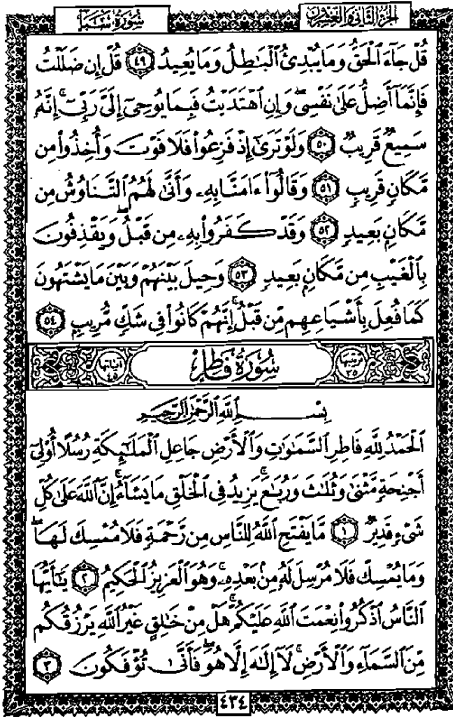 الجزء الثاني والعشرون
سورة سبأ
قُلْ جَآءَ ٱلْحَقُّ وَمَا يُبْدِئُ ٱلْبَٰطِلُ وَمَا يُعِيدُ ٤٩ قُلْ إِن ضَلَلْتُ
فَإِنَّمَآ أَضِلُّ عَلَىٰ نَفْسِى ۖ وَإِنِ ٱهْتَدَيْتُ فَبِمَا يُوحِىٓ إِلَىَّ رَبِّىٓ ۚ إِنَّهُۥ
سَمِيعٌ قَرِيبٌ ٥٠ وَلَوْ تَرَىٰٓ إِذْ فَزِعُوا۟ فَلَا فَوْتَ وَأُخِذُوا۟ مِن
مَّكَانٍ قَرِيبٍ ٥١ وَقَالُوٓا۟ ءَامَنَّا بِهِۦ وَأَنَّىٰ لَهُمُ ٱلتَّنَاوُشُ مِن
مَّكَانٍۭ بَعِيدٍ ٥٢ وَقَدْ كَفَرُوا۟ بِهِۦ مِن قَبْلُ ۖ وَيَقْذِفُونَ
بِٱلْغَيْبِ مِن مَّكَانٍۭ بَعِيدٍ ٥٣ وَحِيلَ بَيْنَهُمْ وَبَيْنَ مَا يَشْتَهُونَ
كَمَا فُعِلَ بِأَشْيَاعِهِم مِّن قَبْلُ ۚ إِنَّهُمْ كَانُوا۟ فِى شَكٍّ مُّرِيبٍۭ ٥٤
ترتيبها ٣٥ سورة فاطر آياتها ٤٥
بِسْمِ ٱللَّهِ ٱلرَّحْمَٰنِ ٱلرَّحِيمِ
ٱلْحَمْدُ لِلَّهِ فَاطِرِ ٱلسَّمَٰوَٰتِ وَٱلْأَرْضِ جَاعِلِ ٱلْمَلَٰٓئِكَةِ رُسُلًا أُو۟لِىٓ
أَجْنِحَةٍ مَّثْنَىٰ وَثُلَٰثَ وَرُبَٰعَ ۚ يَزِيدُ فِى ٱلْخَلْقِ مَا يَشَآءُ ۚ إِنَّ ٱللَّهَ عَلَىٰ كُلِّ
شَىْءٍ قَدِيرٌ ١ مَّا يَفْتَحِ ٱللَّهُ لِلنَّاسِ مِن رَّحْمَةٍ فَلَا مُمْسِكَ لَهَا ۖ
وَمَا يُمْسِكْ فَلَا مُرْسِلَ لَهُۥ مِنۢ بَعْدِهِۦ ۚ وَهُوَ ٱلْعَزِيزُ ٱلْحَكِيمُ ٢ يَٰٓأَيُّهَا
ٱلنَّاسُ ٱذْكُرُوا۟ نِعْمَتَ ٱللَّهِ عَلَيْكُمْ ۚ هَلْ مِنْ خَٰلِقٍ غَيْرُ ٱللَّهِ يَرْزُقُكُم
مِّنَ ٱلسَّمَآءِ وَٱلْأَرْضِ ۚ لَآ إِلَٰهَ إِلَّا هُوَ ۖ فَأَنَّىٰ تُؤْفَكُونَ ٣
٤٣٤